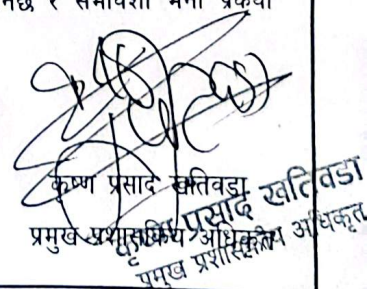 र समावेशी
कृष्ण प्रसाद खतिवडा
प्रमुख प्रशासकीय अधिकृत
कृष्ण प्रसाद खतिवडा
प्रमुख प्रशासकीय अधिकृत